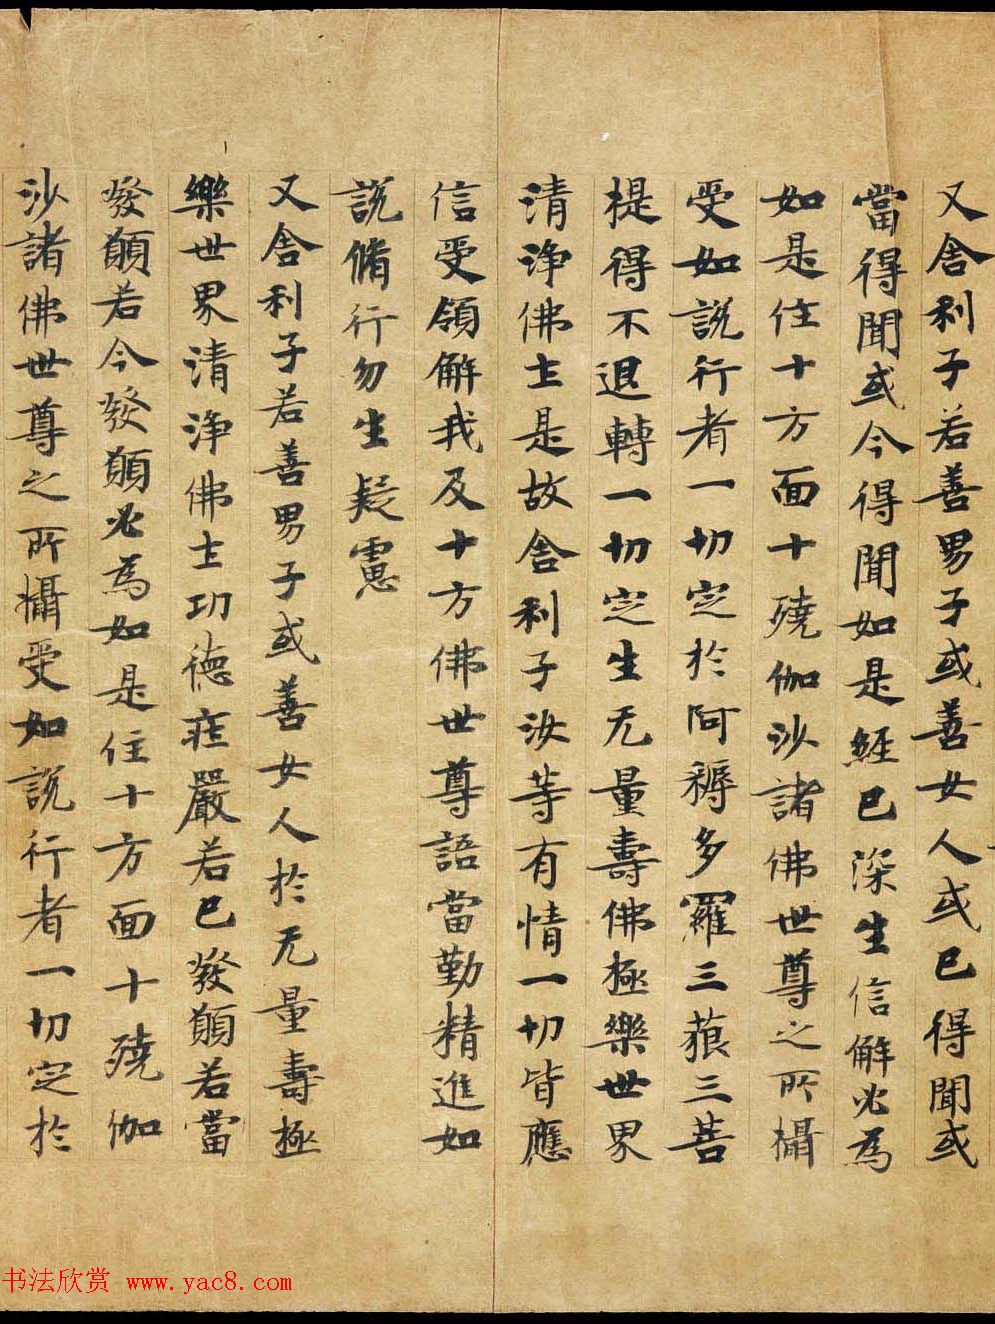 又舍利子若善男子或善女人或已得聞或
當得聞或今得聞如是經已深生信解必為
如是住十方面十殑伽沙諸佛世尊之所攝
受如說行者一切定於阿耨多羅三藐三菩
提得不退轉一切定生无量壽佛極樂世界
清淨佛土是故舍利子汝等有情一切皆應
信受領解我及十方佛世尊語當勤精進如
說脩行勿生疑慮
又舍利子若善男子或善女人於无量壽極
樂世界清淨佛土功德莊嚴若已發願若當
發願若今發願必為如是住十方面十殑伽
沙諸佛世尊之所攝受如說行者一切定於
书法欣赏 www.yac8.com